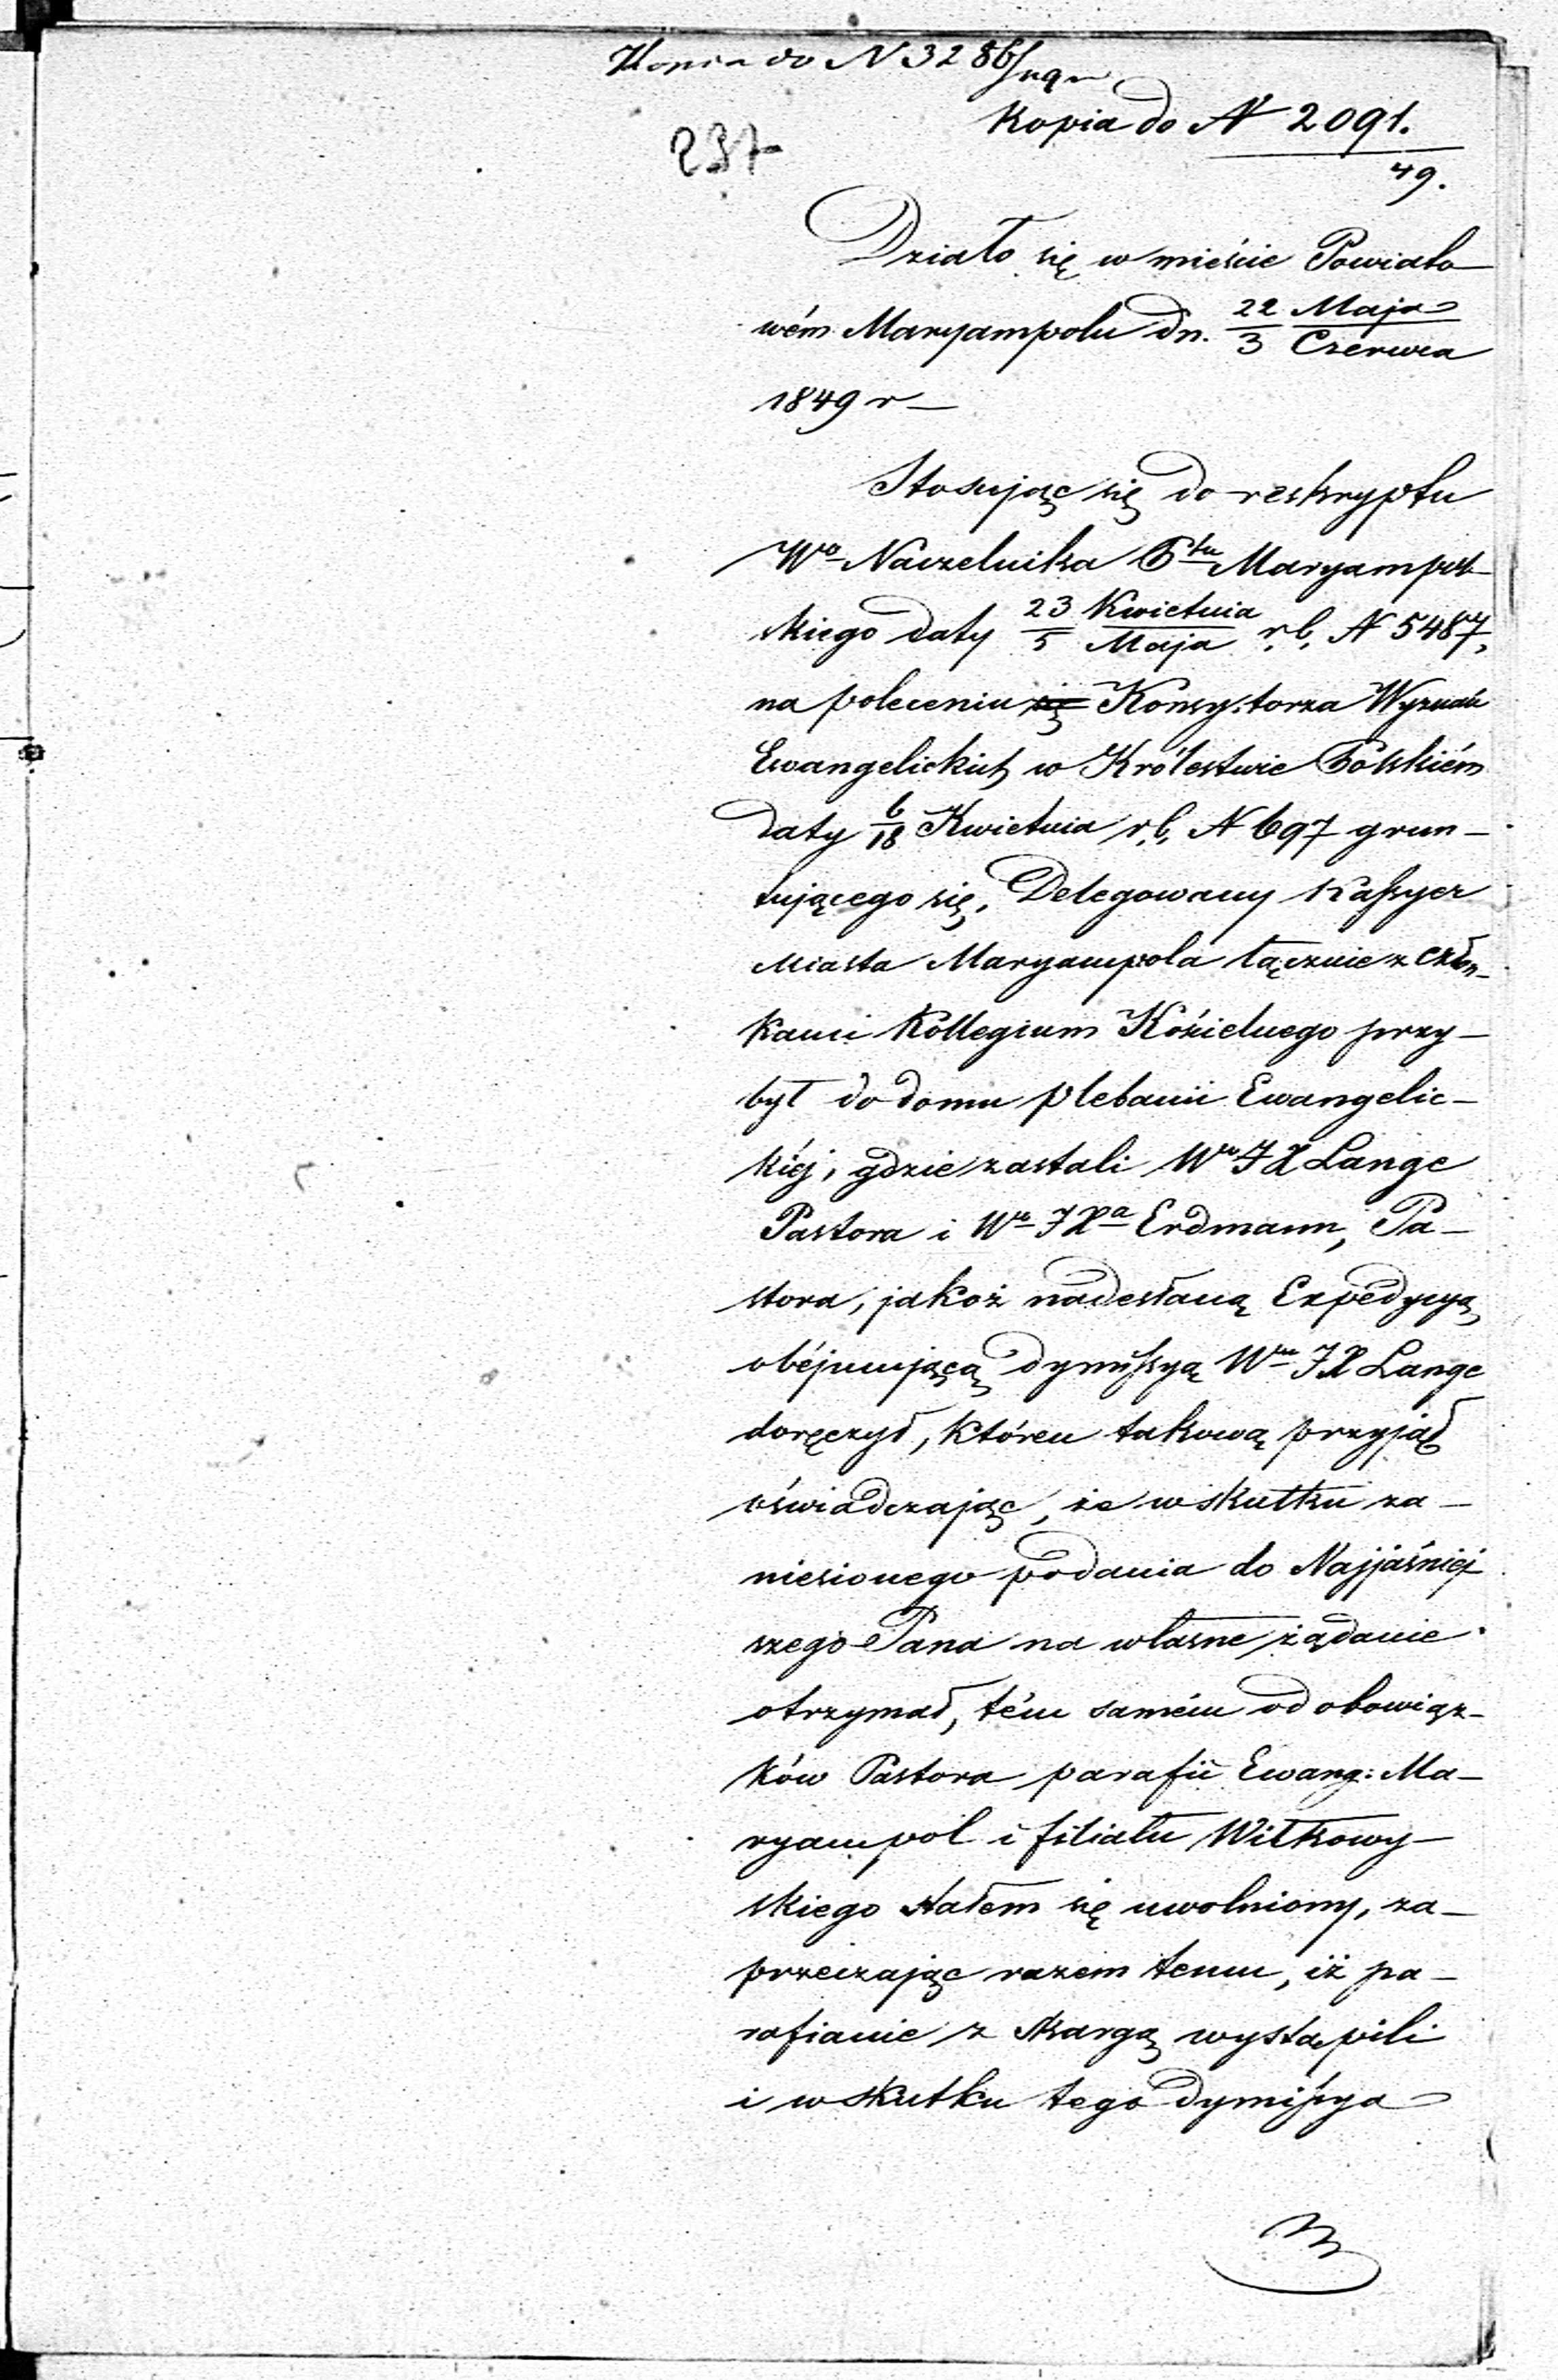 Kopia do N 3286
Kopia do N 2091.
49.
237
Działo się w mieście Powiato-
wém Maryampolu dn. 22 Maja / 3 Czerwca
1849 r —
Stosując się do reskryptu
Wo Naczelnika Ptu Maryampol-
skiego daty 23 Kwietnia / 5 Maja r.b. N 5487,
na poleceniu się Konsystorza Wyznań
Ewangelickich w Królestwie Polskiém
daty 6/18 Kwietnia r.b. N 697 grun-
tującego się, Delegowany Kassyer
Miasta Maryampola łącznie z człon-
kami Kollegium Kościelnego przy-
był do domu plebanii Ewangelic-
kiéj, gdzie zastali Wo JX Lange
Pastora i Wo JXa Erdmann, Pa-
stora, jakoż nadesłaną Expedycyą
obéjmującą dymissyą Wmu JX Lange
doręczył, któren takową przyjął
oświadczając, że w skutku za-
niesionego podania do Najjaśniéj-
szego Pana na własne żądanie
otrzymał, tém samém od obowiąz-
ków Pastora parafii Ewang: Ma-
ryampol i filiału Wiłkowy-
skiego stałem się uwolniony, za-
przeczając razem temu, iż pa-
rafianie z skargą wystąpili
i w skutku tego dymissya